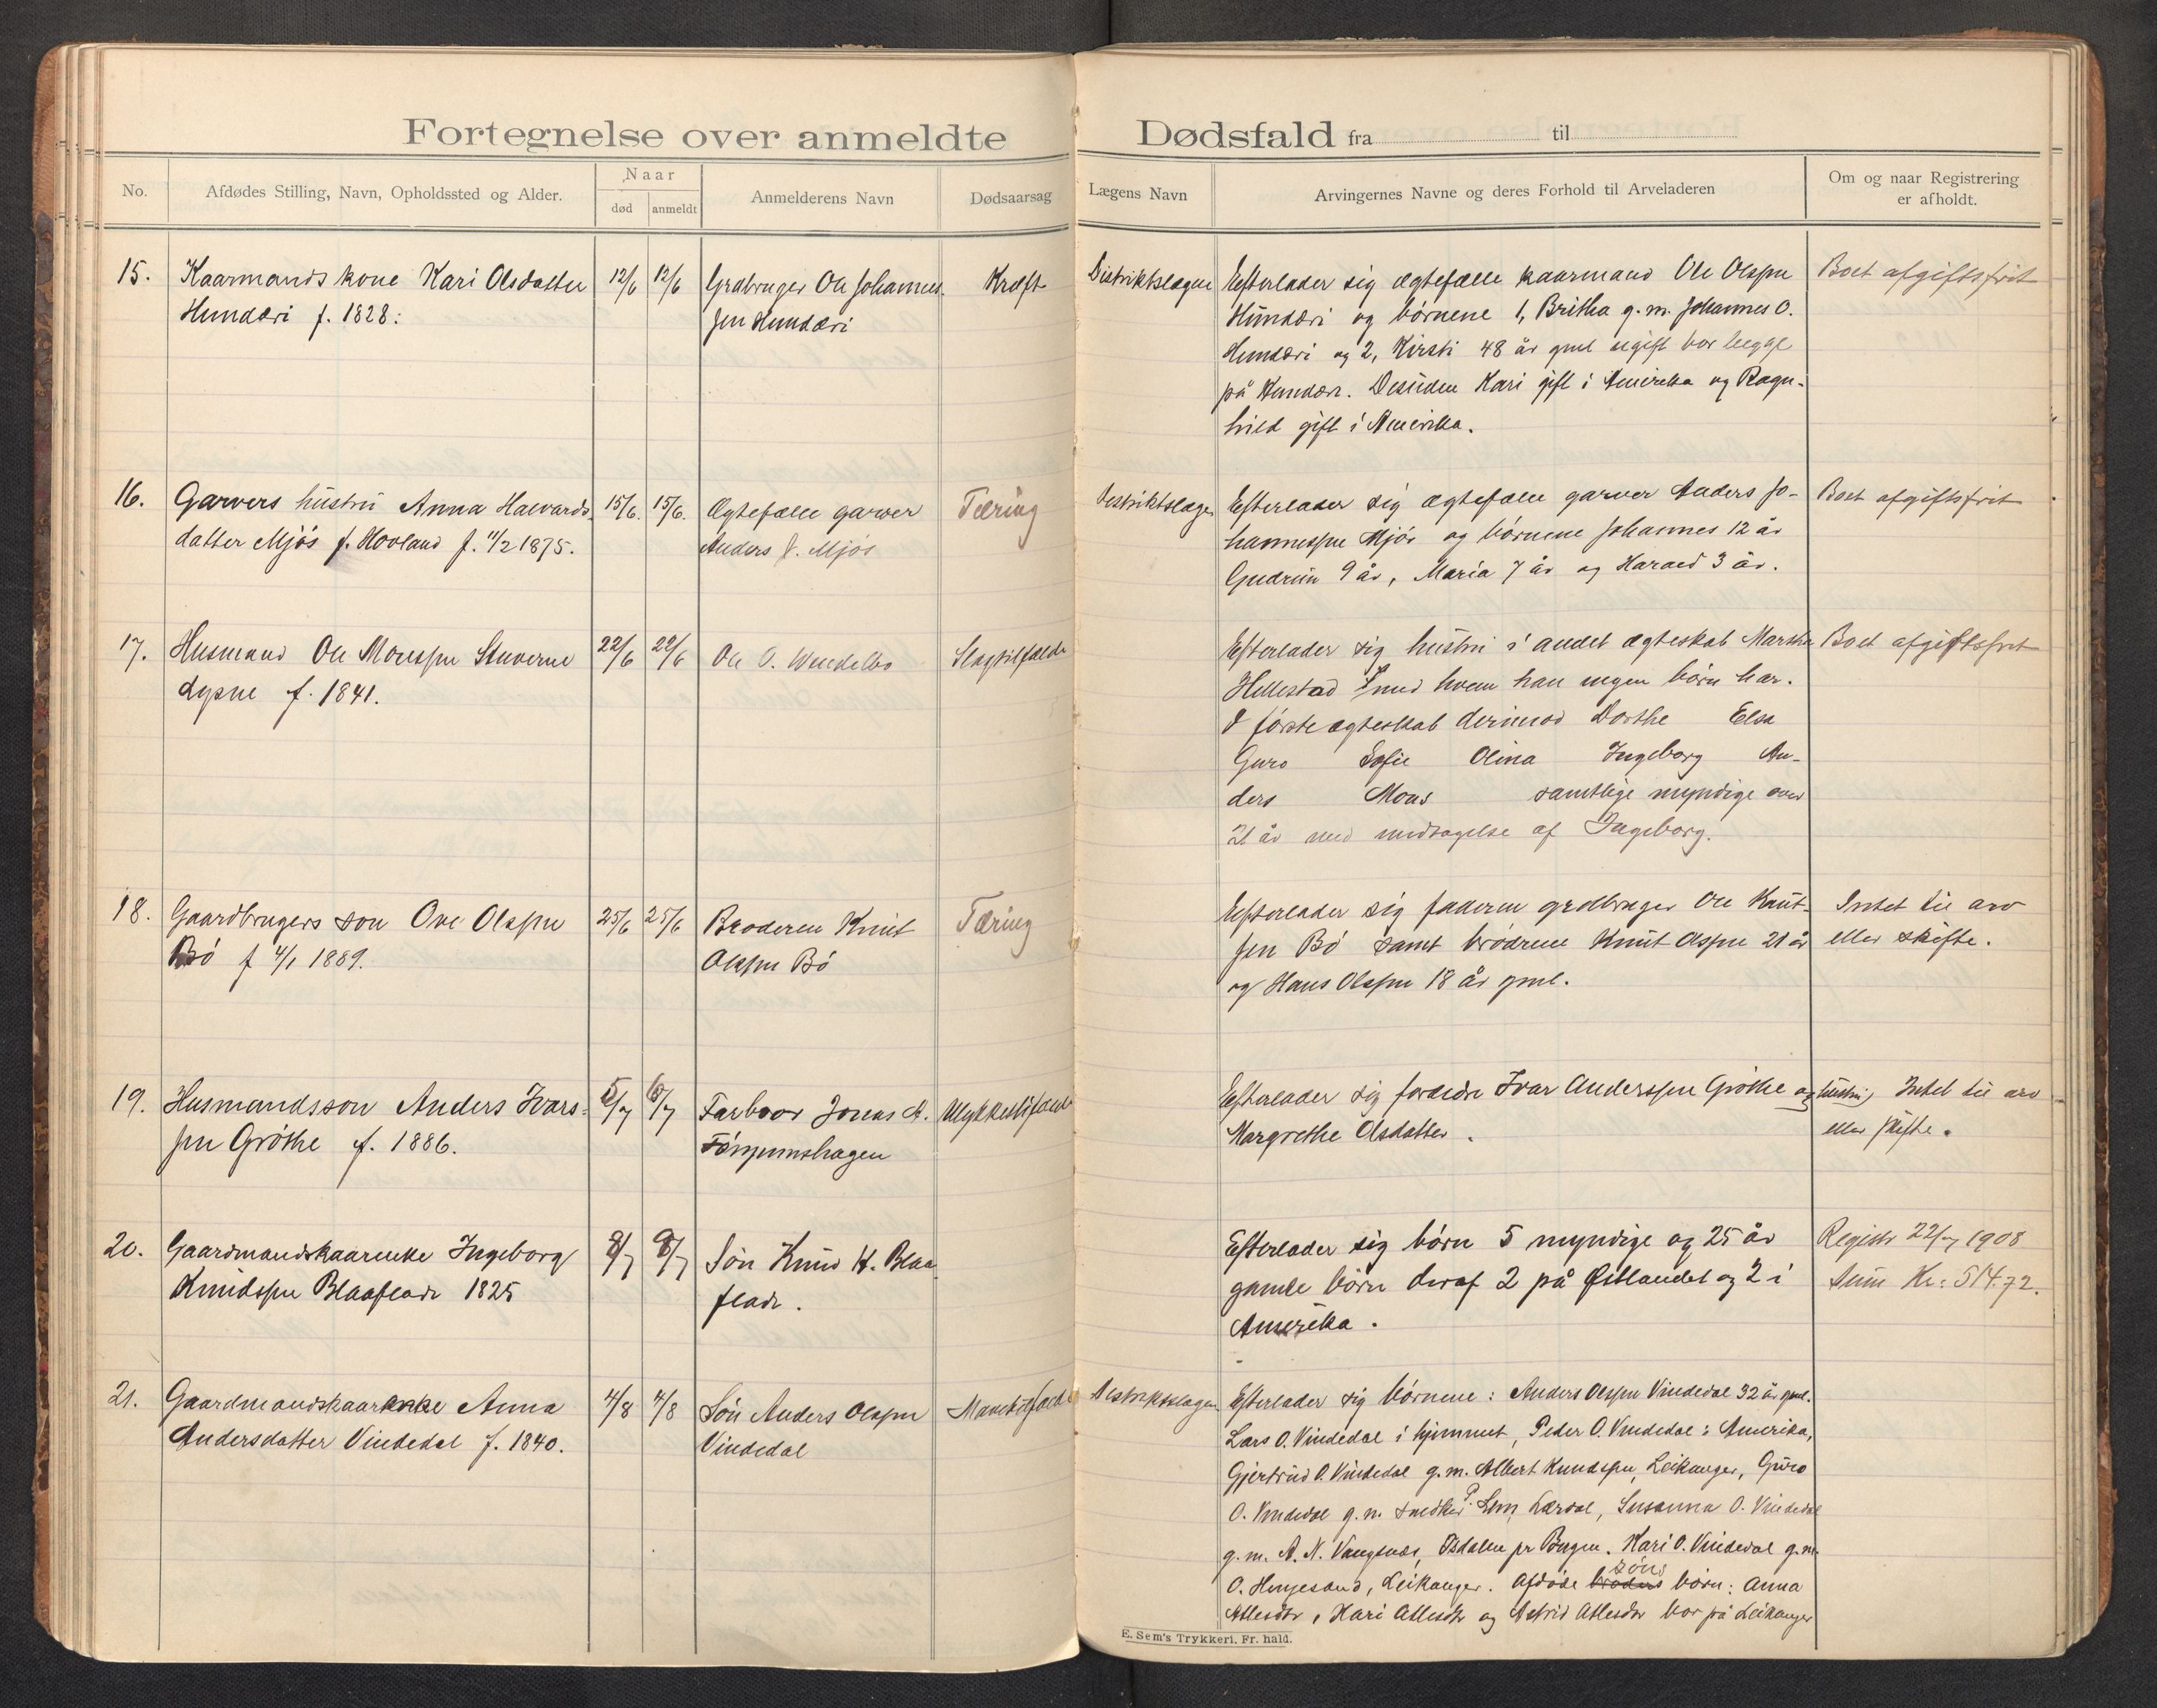 Fortegnelse over anmeldte Dødsfald fra til
No.
Afdødes Stilling, Navn, Opholdssted og Alder.
Naar
død
anmeldt
Anmelderens Navn
Dødsaarsag
Lægens Navn
Arvingernes Navne og deres Forhold til Arveladeren
Om og naar Registrering
er afholdt.
15.
Kaarmands kone Kari Olsdatter
Hundæri f. 1828:
12/6
12/6
Grdbruger Ole Johannes-
sen Hundæri
Kræft
Distriktslægen
Efterlader sig ægtefælle kaarmand Ole Olsen
Hundæri og børnene 1, Britha g.m. Johannes O.
Hundæri og 2, Kirsti 48 år gml ugift bor begge
på Hundæri. Desuden Kari gift i Amerika og Ragn-
hild gift i Amerika.
Boet afgiftsfrit
16.
Garvers hustru Anna Halvards-
datter Mjøs f. Hovland f. 11/2 1875.
15/6.
15/6.
Ægtefælle garver
Anders J. Mjøs
Tæring
Distriktslægen
Efterlader sig ægtefælle garver Anders Jo-
hannessen Mjøs og børnene Johannes 12 år
Gudrun 9 år, Maria 7 år og Harald 3 år.
Boet afgiftsfrit
17.
Husmand Ole Monssen Stuverne
Lysne f. 1841.
22/6
22/6
Ole O. Wendelbo
Slagtilfælde
Efterlader sig hustru i andet ægteskab Martha
Hillestad med hvem han ingen børn har.
I første ægteskab derimod Dorthe Elsa
Guro Sofie Olina Ingeborg An-
ders Mons samtlige myndige over
21 år med undtagelse af Ingeborg.
Boet afgiftsfrit
18.
Gaardbrugers søn Ove Olsen
Bø f 4/1 1889.
25/6
25/6
Broderen Knut
Olsen Bø
Tæring
Efterlader sig faderen grdbruger Ole Knut-
sen Bø samt brødrene Knut Olsen 21 år
og Hans Olsen 18 år gml.
Intet til arv
eller skifte.
19.
Husmandssøn Anders Ivars-
sen Grøthe f. 1886.
5/7
6/7
Farbror Jonas A.
Ulykkestilfælde
Efterlader sig forældre Ivar Anderssen Grøthe og hustru
Margrethe Olsdatter.
Intet til arv
eller skifte.
20.
Gaardmandskaarenke Ingeborg
Knudsen Blaaflade 1825
8/7
8/7
Søn Knud H. Blaa-
flade.
Efterlader sig børn 5 myndige og 25 år
gamle børn deraf 2 på Østlandet og 2 i
Amerika.
Registr 22/7 1908
Sum Kr: 514.72.
21.
Gaardmandskaarenke Anna
Andersdatter Vindedal f. 1840.
4/8
4/8
Søn Anders Olsen
Vindedal
Distriktslægen
Efterlader sig børnene: Anders Olsen Vindedal 32 år gml.
Lars O. Vindedal i hjemmet, Peder O. Vindedal i Amerika,
Gjertrud O. Vindedal g.m. Albert Knudsen, Leikanger, Guro
O. Vindedal g.m. snedker P. Lem, Lærdal, Susanna O. Vindedal
g.m. A. N. Vangsnes, Osdalen pr Bergen. Kari O. Vindedal g.m.
O. Henjesand, Leikanger. Afdøde broders søns børn: Anna
Atlesdtr, Kari Atlesdtr og Astrid Atlesdtr bor på Leikanger
E. Sem's Trykkeri. Fr. hald.